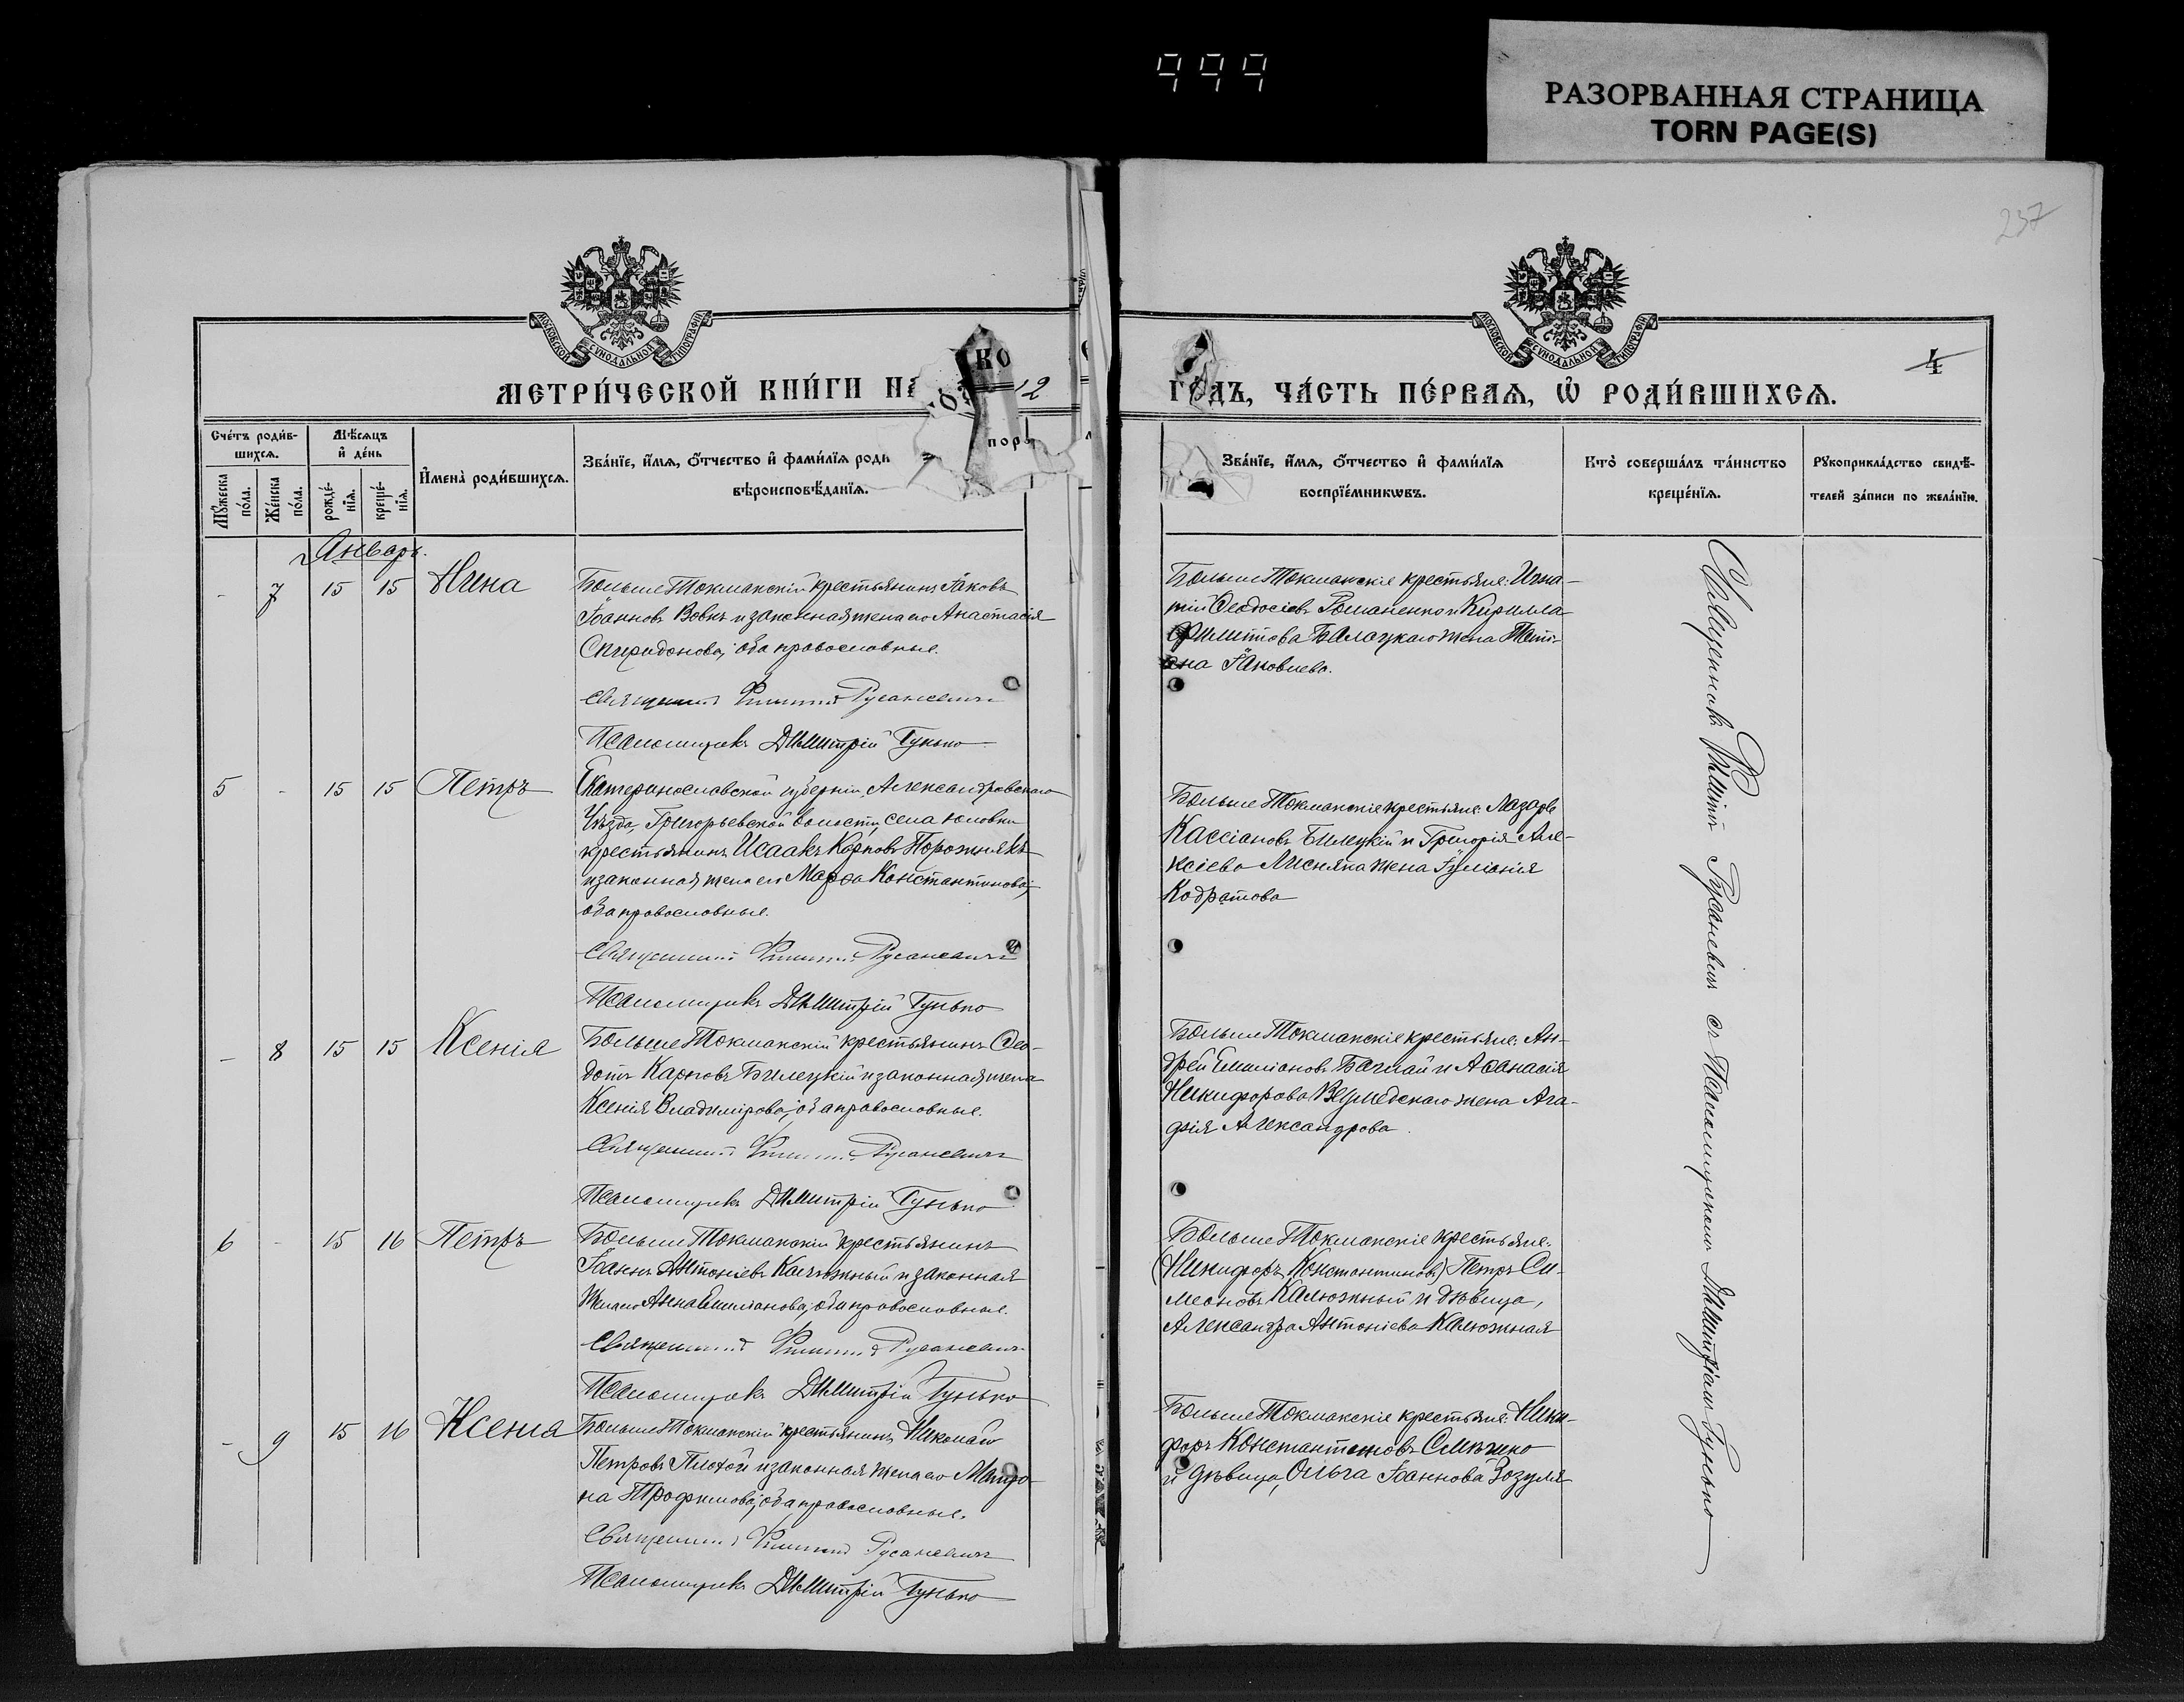 999
РАЗОРВАННАЯ СТРАНИЦА
TORN PAGE(S)
237
МОСКОВСКОЙ СѴНОДАЛЬНОЙ ТИПОГРАФІИ
МОСКОВСКОЙ СѴНОДАЛЬНОЙ ТИПОГРАФІИ
4
МЕТРИ́ЧЕСКОЙ КНИ́ГИ НА
12
ГО́ДЪ, ЧА́СТЬ ПЕ́РВАѦ, Ѡ҆ РОДИ́ВШИХСѦ.
Сче́тъ роди́в-
шихсѧ.
Мꙋ́жеска по́ла.
Же́нска по́ла.
Мѣ́сѧцъ
и҆ де́нь
рожде́-
нїѧ.
креще́-
нїѧ.
И҆мена̀ роди́вшихсѧ.
Зва́нїе, и҆́мѧ, ѻ҆́тчество и҆ фами́лїѧ роди
вѣроисповѣ́данїѧ.
Зва́нїе, и҆́мѧ, ѻ҆́тчество и҆ фами́лїѧ
воспрїе́мникѡвъ.
Кто̀ соверша́лъ та́инство
креще́нїѧ.
Рꙋкоприкла́дство свидѣ́-
телей за́писи по жела́нїю.
Январь.
- 7 15 15 Нина
Больше Токмакскій крестьянинъ Іаковъ
Іоанновъ Вовкъ и законная жена его Анастасія
Спиридонова, оба православные.
Священникъ Филиппъ Русаневичъ
Псаломщикъ Димитрій Гунько
Больше Токмакскіе крестьяне: Игна-
тій Ѳеодосіевъ Романенко и Кирилла
Филиппова Балацкаго жена Тать-
яна Іаковлева.
5 - 15 15 Петръ
Екатеринославской губерніи, Александровскаго
Уѣзда, Григорьевской волости, села Юловки
крестьянинъ Исаакъ Карповъ Порожнякъ
и законная жена его Марѳа Константинова,
оба православные.
Священникъ Филиппъ Русаневичъ
Псаломщикъ Димитрій Гунько
Больше Токмакскіе крестьяне: Лазарь
Кассіановъ Билецкій и Григорія Але-
ксіева Лисняка жена Іуліанія
Кодратова
- 8 15 15 Ксенія
Больше Токмакскій крестьянинъ Ѳео-
дотъ Карповъ Билецкій и законная жена
Ксенія Владимірова, оба православные.
Священникъ Филиппъ Русаневичъ
Псаломщикъ Димитрій Гунько
Больше Токмакскіе крестьяне: Ан-
дрей Емиліановъ Багмай и Аѳанасія
Никифорова жена Ага-
фія Александрова.
6 - 15 16 Петръ
Больше Токмакскій крестьянинъ
Іоаннъ Антоніевъ Калюжный и законная
жена его Анна Емиліанова, оба православные.
Священникъ Филиппъ Русаневичъ
Псаломщикъ Димитрій Гунько
Больше Токмакскіе крестьяне:
(Никифоръ Константиновъ) Петръ Си-
меоновъ Калюжный и дѣвица,
Александра Антоніева Калюжная
- 9 15 16 Ксенія
Больше Токмакскій крестьянинъ Николай
Петровъ Плохой и законная жена его Матро-
на Трофимова, оба православные.
Священникъ Филиппъ Русаневичъ
Псаломщикъ Димитрій Гунько
Больше Токмакскіе крестьяне: Ники-
форъ Константиновъ
и дѣвица, Ольга Іоаннова Зозуля
Священникъ Филиппъ Русаневичъ съ Псаломщикомъ Димитріемъ Гунько